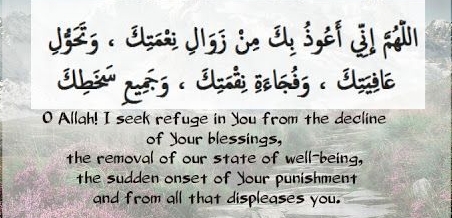 اللّٰهُمَّ إِنِّي أَعُوذُ بِكَ مِنْ زَوَالِ نِعْمَتِكَ ، وَتَحَوُّلِ
عَافِيَتِكَ ، وَفُجَاءَةِ نِقْمَتِكَ ، وَجَمِيعِ سَخَطِكَ
O Allah! I seek refuge in You from the decline
of Your blessings,
the removal of our state of well-being,
the sudden onset of Your punishment
and from all that displeases you.